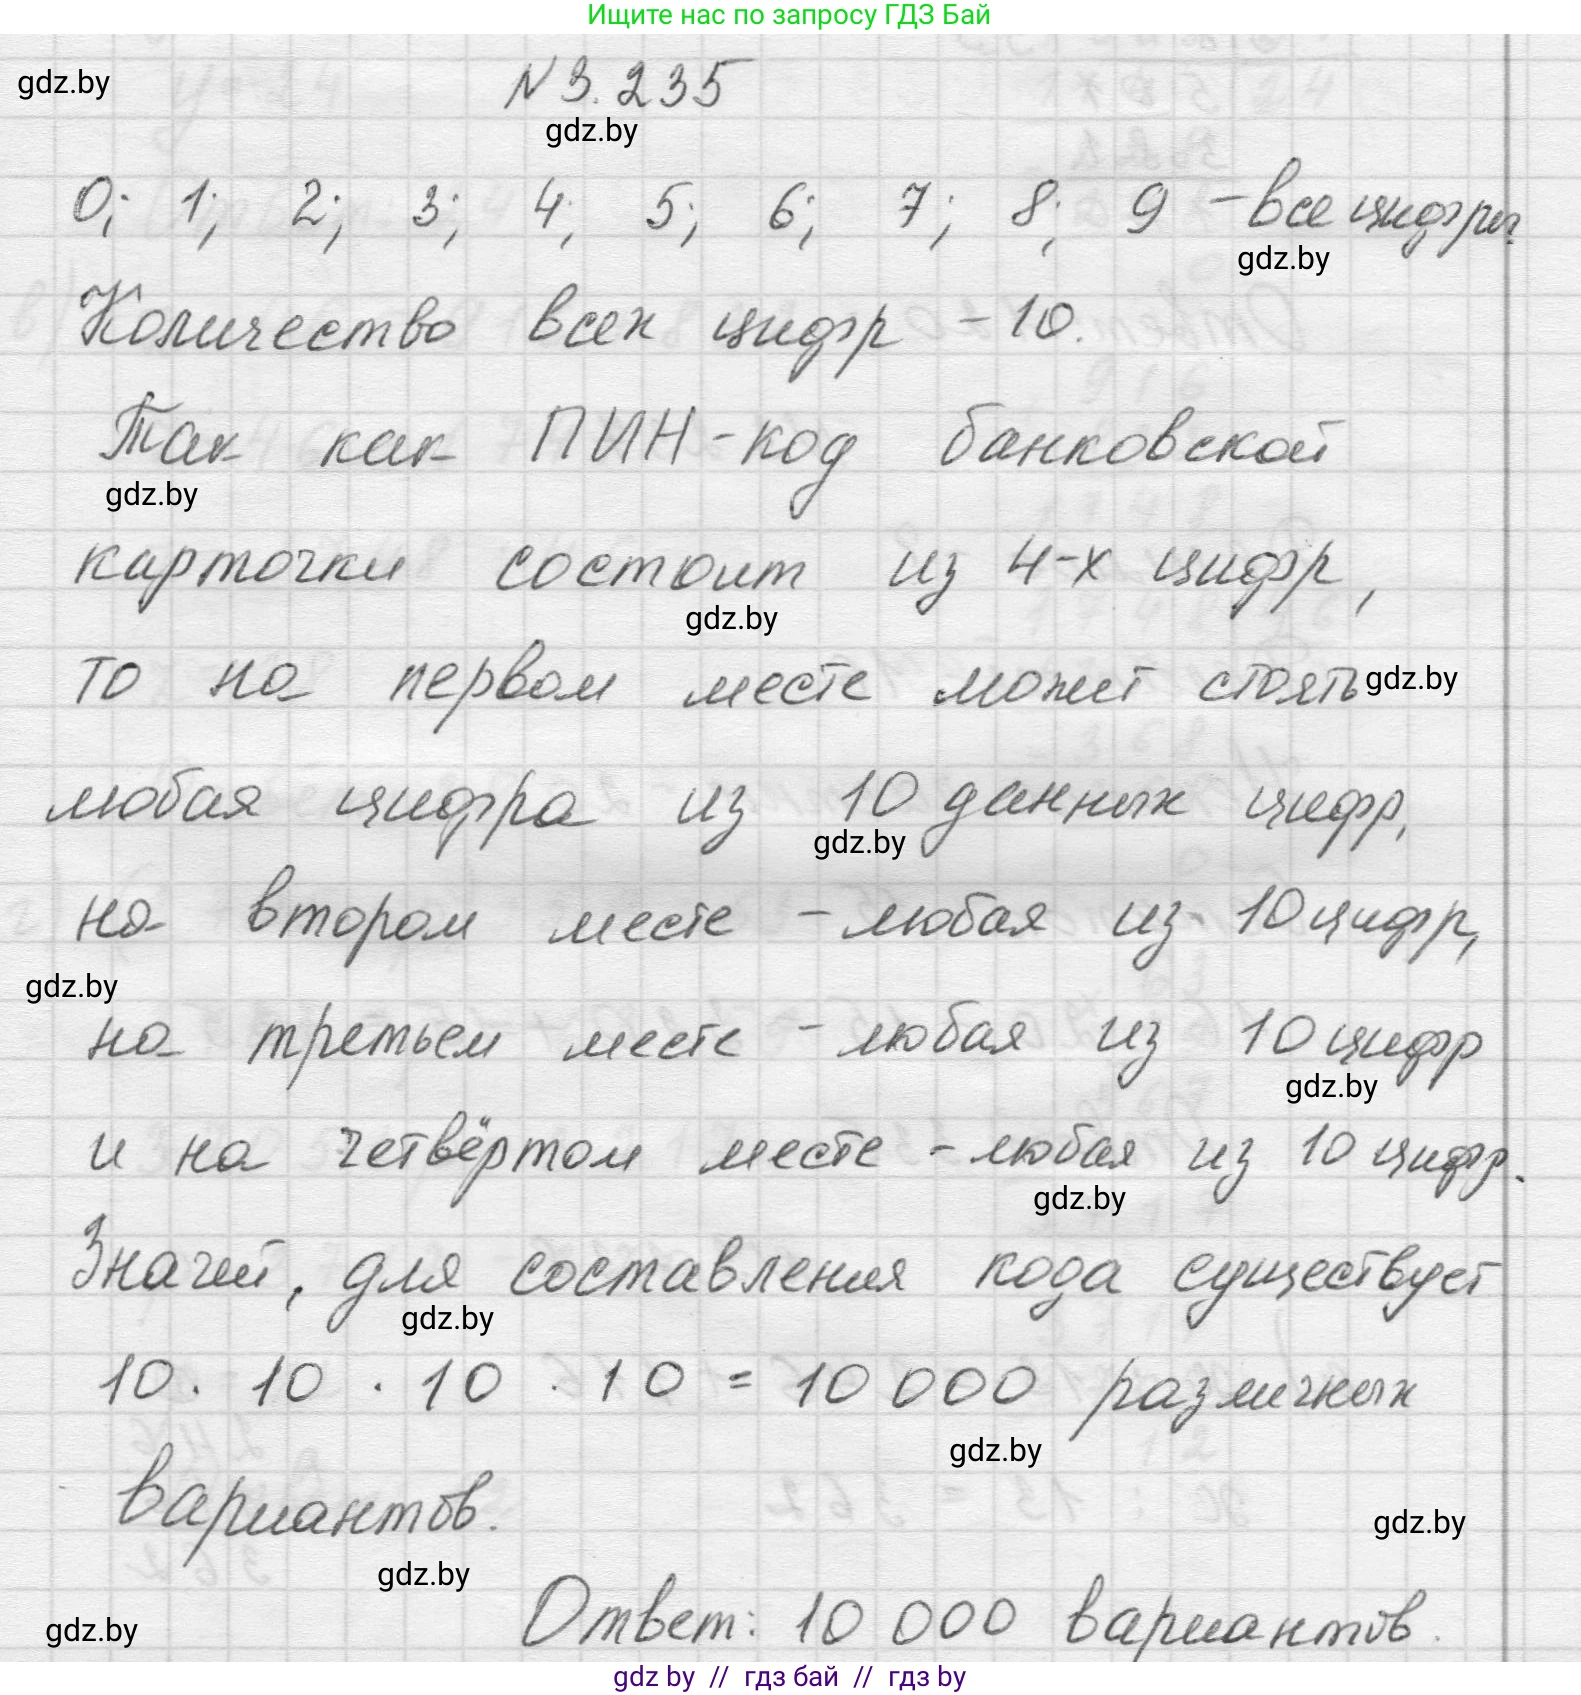 Ищите нас по запросу ГДЗ Бай
gdz.by
N 3.235
gdz.by
0; 1; 2; 3; 4; 5; 6; 7; 8; 9 - все цифры.
gdz.by
Количество всех цифр - 10.
Так как ПИН-код банковской
gdz.by
карточки состоит из 4-х цифр,
gdz.by
то на первом месте может стоять
gdz.by
любая цифра из 10 данных цифр,
gdz.by
на втором месте - любая из 10 цифр,
gdz.by
на третьем месте - любая из 10 цифр
gdz.by
и на четвёртом месте - любая из 10 цифр.
gdz.by
Значит, для составления кода существует
gdz.by
10 · 10 · 10 · 10 = 10 000 различных
gdz.by
вариантов.
gdz.by
gdz.by
Ответ: 10 000 вариантов.
gdz.by
gdz by // гдз бай // гдз by